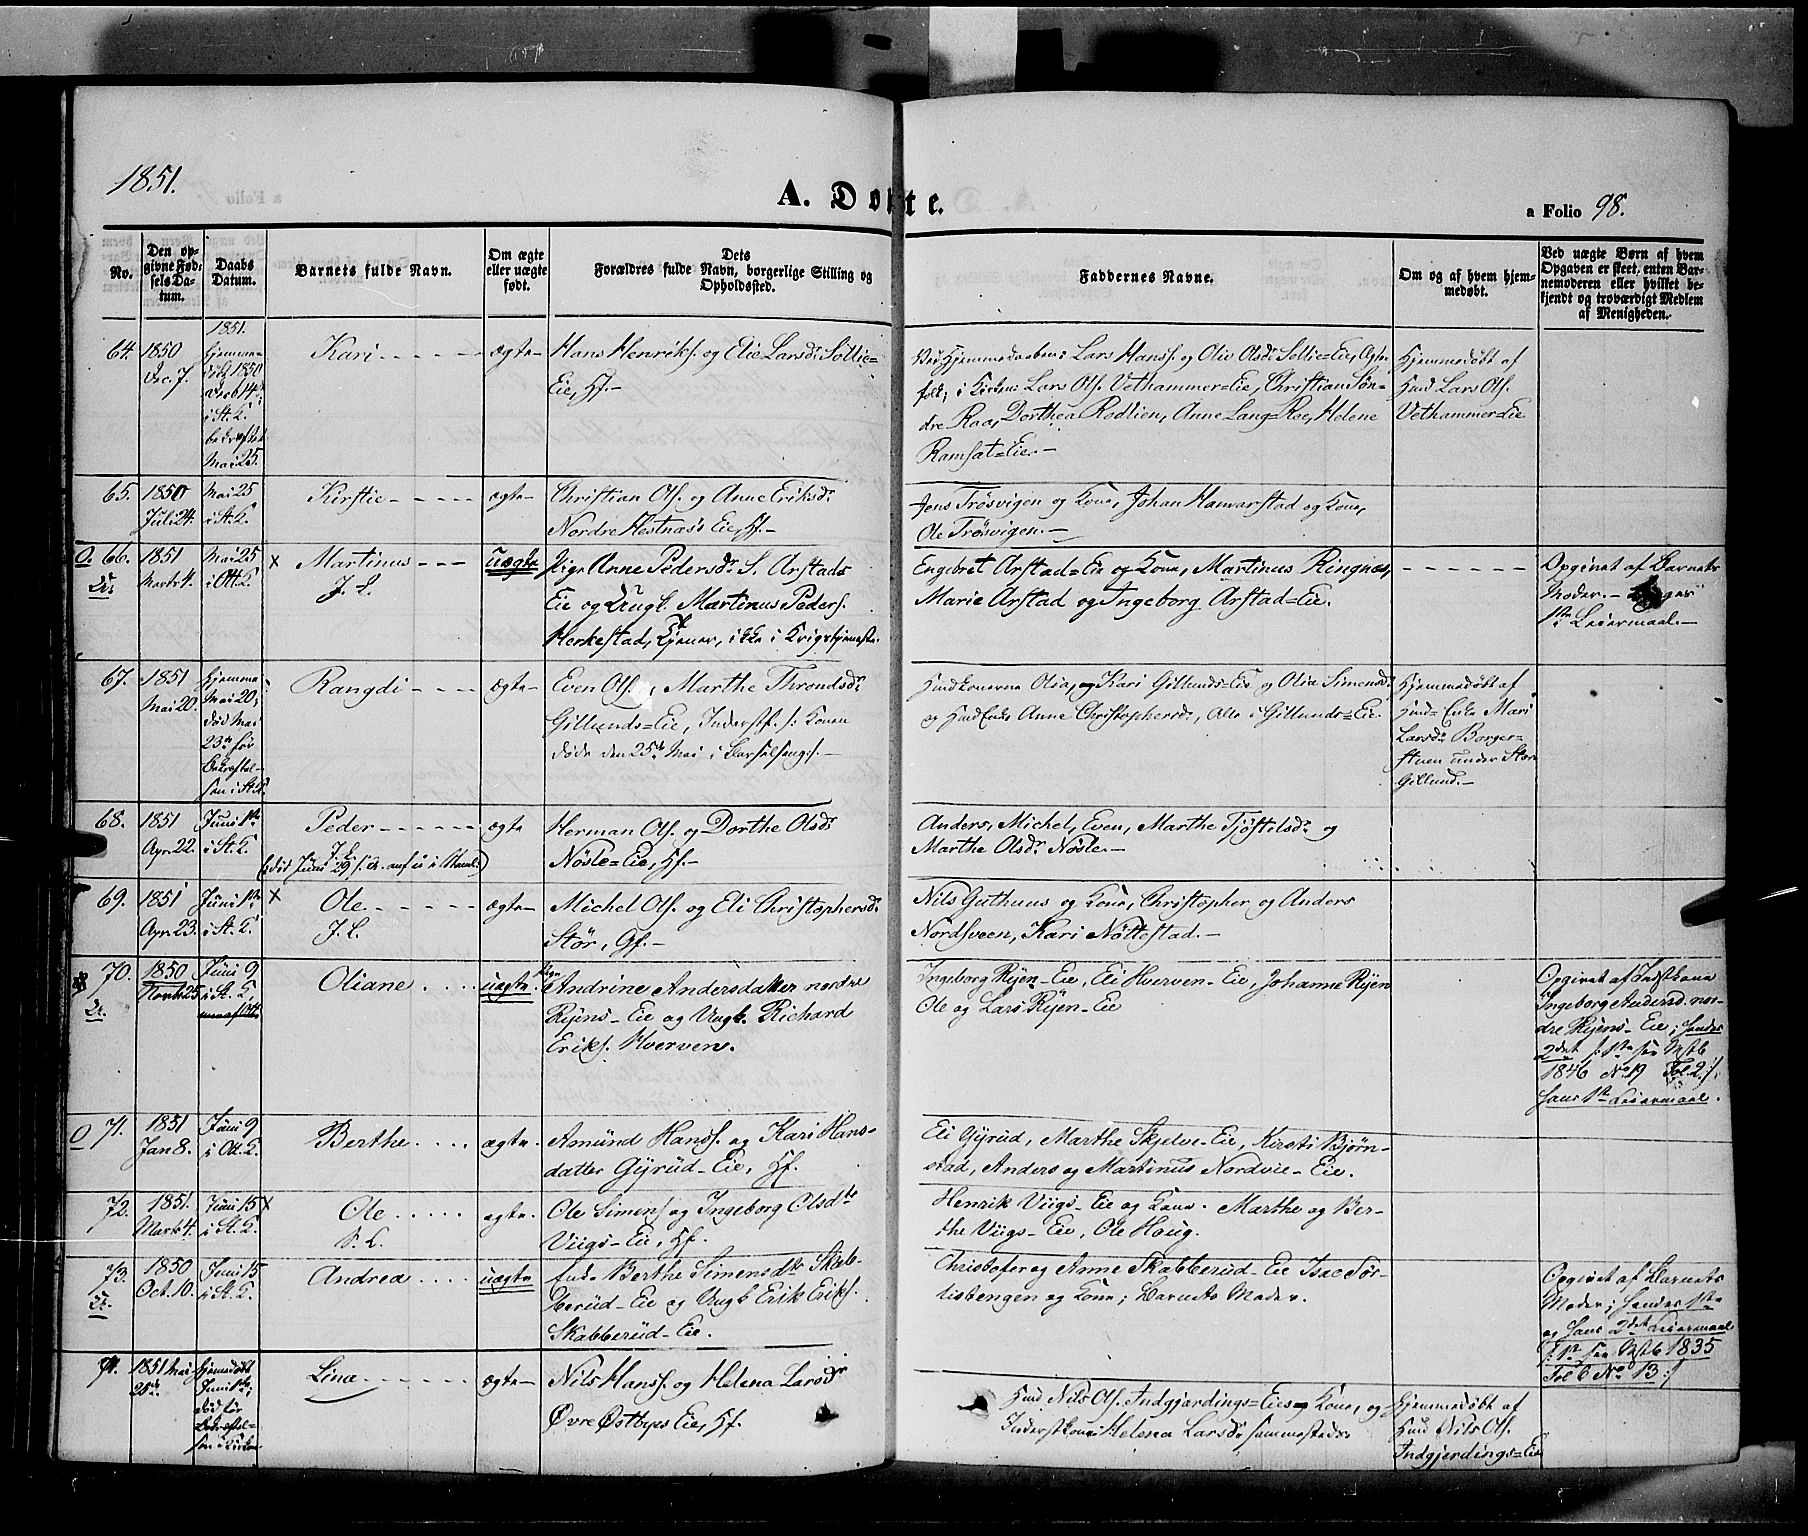 1851.
A. Døbte.
a Folio 98.
No.
Den op-
givne Fød-
sels Da-
tum.
Daabs
Datum.
Barnets fulde Navn.
Om ægte
eller uægte
født.
Dets
Forældres fulde Navn, borgerlige Stilling og
Opholdssted.
Faddernes Navne.
Om og af hvem hjem-
medøbt.
Ved uægte Børn af hvem
Opgaven er skeet, enten Bar-
nemoderen eller hvilket be-
kjendt og troværdigt Medlem
af Menigheden.
64. 1850
Dec. 7.
1851.
hjemme-
døbt 1850
Decb 14
i St. K.
bekræftet
Mai 25.
Kari
ægte
Hans Henriks. og Elie Larsdr Sollie=
Eie, Hf.
Ved Hjemmedaaben: Lars Hanss. og Olie Olsdr Sollie=Eie, Ægte-
folk; i Kirken: Lars Ols. Vethammer=Eie, Christian Søn-
dre Raa, Dorthea Rodlien, Anne Lang=Roe, Helene
Ramsat=Eie.
Hjemmedøbt af
Hmd Lars Ols.
Vethammer=Eie
65. 1850
Juli 24.
Mai 25
i St. K.
Kirstie
ægte
Christian Ols. og Anne Eriksdr
Nordre Hestnæs's Eie, Hf.
Jens Trøsvigen og Kone, Johan Hamarstad og Kone,
Ole Trøsvigen.
O. 66. 1851
Marts 4.
Mai 25
i Ott. K.
x Martinus
J. L.
uægte
Pige Anne Pedersdr S. Arstads
Eie og Ungk. Martinus Peders.
Herkestad, Tjener, ikke i Krigstjeneste.
Engebret Arstad=Eie og Kone, Martinus Ringnæs,
Marie Arstad og Ingeborg Arstad=Eie.
Opgivet af Barnets
Moder.
1ste Leiermaal.
67. 1851
Mai 20.
Hjemme
Mai 20,
død Mai
23de før
Bekræftel-
sen i St. K.
Rangdi
ægte
Even Ols. Marthe Throndsdr
Gillunds=Eie, Inderstf. /: Konen
døde den 25de Mai i Barselseng :/.
Hmdkonerne Olia, og Kari Gillunds=Eie og Olia Simensdr
og Hmd Enke Anne Christophersdr, Alle i Gillunds=Eie.
Hjemmedøbt af
Hmd=Enke Mari
Larsdr Borger-
stuen under Store
Gillund.
68. 1851
Apr. 22.
Juni 1ste
i St. K.
Peder
J. L.
ægte
Herman Ols. og Dorthe Olsdr
Nøsle=Eie, Hf.
Anders, Michel, Even, Marthe Tjøstelsdr og
Marthe Olsdr Nøsle.
69. 1851
Apr. 23.
Juni 1ste
i St. K.
x Ole
J. L.
ægte
Michel Ols. og Eli Christophersdr
Stør, Gf.
Nils Guthuus og Kone, Christopher og Anders
Nordsveen, Kari Nøttestad.
70. 1850
Novb 25
Juni 9
i St. K.
Oliane
uægte
Pige
Andrine Andersdatter nordre
Ryens-Eie og Ungk. Richard
Eriks. Hverven.
Ingeborg Ryen-Eie, Eli Hverven-Eie, Johanne Ryen
Ole og Lars Ryen-Eie
Opgivet af Indstkone
Ingeborg Andersd. nor-
dre Ryens-Eie; hendes
2det /: 1ste see Mstb
1846 No 19 Fol. 2. :/
hans 1ste Leiermaal.
O 71. 1851
Jan 8.
Juni 9
i Ot. K.
Berthe
ægte.
Amund Hanss. og Kari Hans-
datter Gyrud-Eie, Hf.
Eli Gyrud, Marthe Skjelve-Eie, Kirsti Bjørn-
stad, Anders og Martinus Nordvie-Eie.
72. 1851.
Marts 4.
Juni 15
i St. K.
x Ole
ægte
Ole Simens. og Ingeborg Olsdtr
Viigs-Eie, Hf.
Henrik Viigs-Eie og Kone. Marthe og Ber-
the Viigs-Eie, Ole Houg.
73. 1850
Oct. 10.
Juni 15
i St. K.
Andrea
uægte
Enke Berthe Simensdtr Skab-
berud-Eie og Ungk Erik Eriks.
Skabberud-Eie.
Christofer og Anne Skabberud-Eie Isac Tør-
lisbengen og Kone; Barnets Moder.
Opgivet af Barnets
Moder; hendes 1ste
og hans 2det Leiermaal
/: 1ste see Mstb 1835
Fol 6 No 13 :/
74. 1851 Mai
25de
hjemmedøbt
Juni 1ste,
død før
Bekræftel-
sen i Kirken
Lina
ægte
Nils Hanss. og Helena Larsdr
Øvre Østbyes Eie, Hf.
Hmd Nils Ols. Indgjerdings=Eie og Kone, og
Inderstkone Helena Larsdr sammesteds.
Hjemmedøbt af
Hmd Nils Ols.
Indgjerdings=Eie